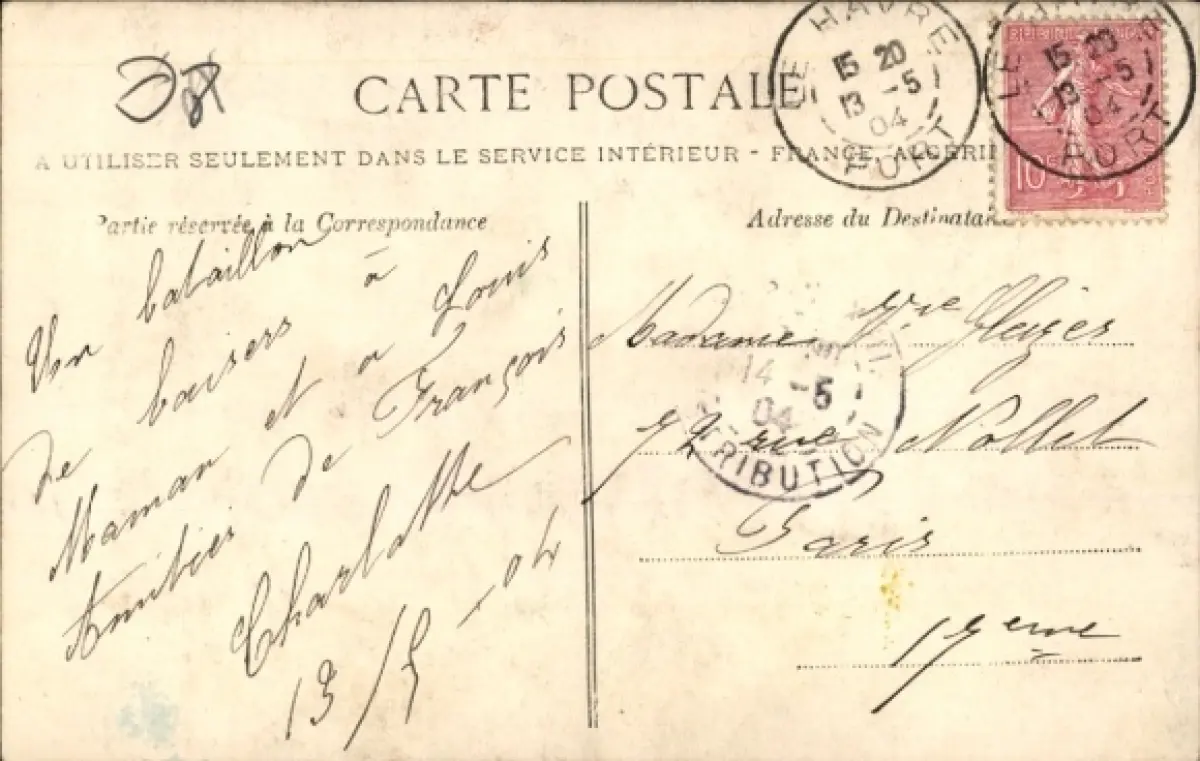 CARTE POSTALE
A UTILISER SEULEMENT DANS LE SERVICE INTÉRIEUR - FRANCE, ALGÉRIE
Partie réservée à la Correspondance
Un bataillon
de baisers à
Maman et à Louis
Amitiés de François
Charlotte
13/5-04
Adresse du Destinataire
Madame Vve
72 rue Nollet
Paris
17eme
LE HAVRE
15 20
13 -5
04
PORT
LE HAVRE
15 20
13 -5
04
PORT
10c
14 -5
04
DISTRIBUTION